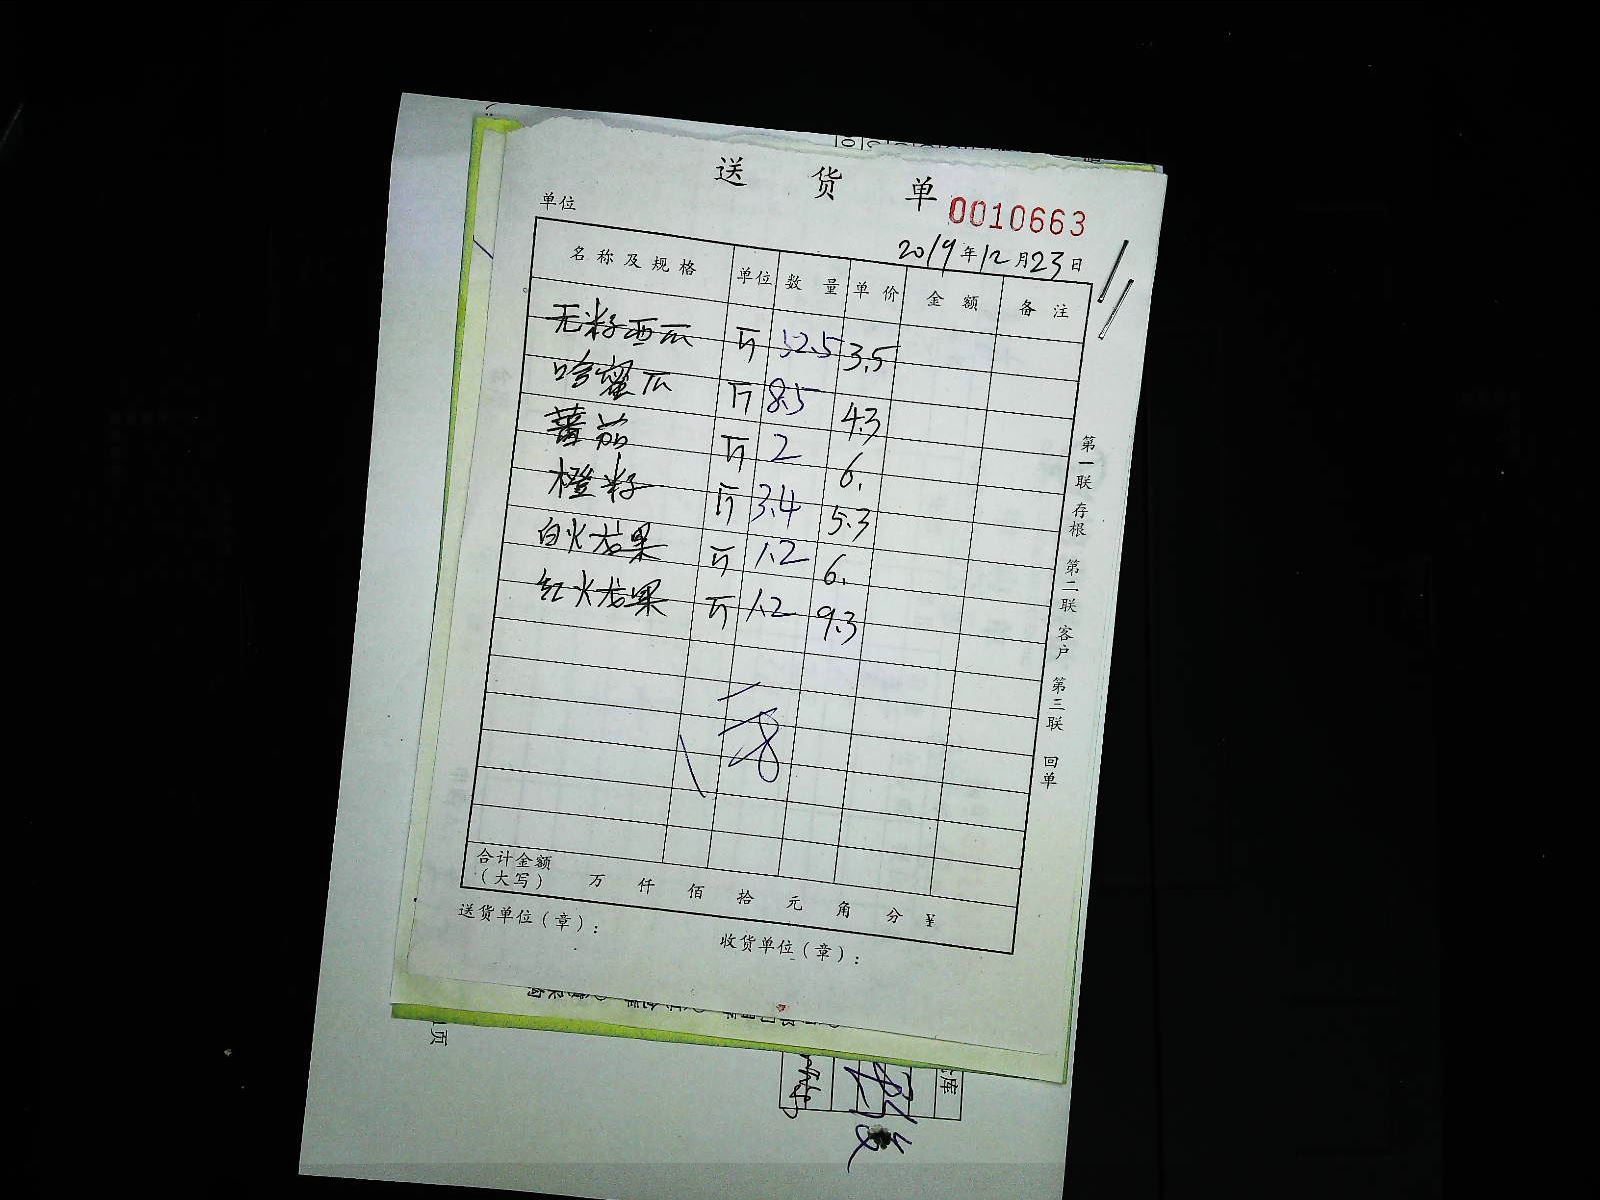 送 货 单
0010663
单位
2019年12月23日
名称及规格 单位 数量 单价 金额 备注
无籽西瓜 斤 32.5 3.5
哈蜜瓜 斤 8.5 4.3
蕃茄 斤 2 6.
橙籽 斤 3.4 5.3
白火龙果 斤 1.2 6.
红火龙果 斤 1.2 9.3
合计金额
（大写） 万 仟 佰 拾 元 角 分 ¥
送货单位（章）：
收货单位（章）：
第一联 存根 第二联 客户 第三联 回单
页
库